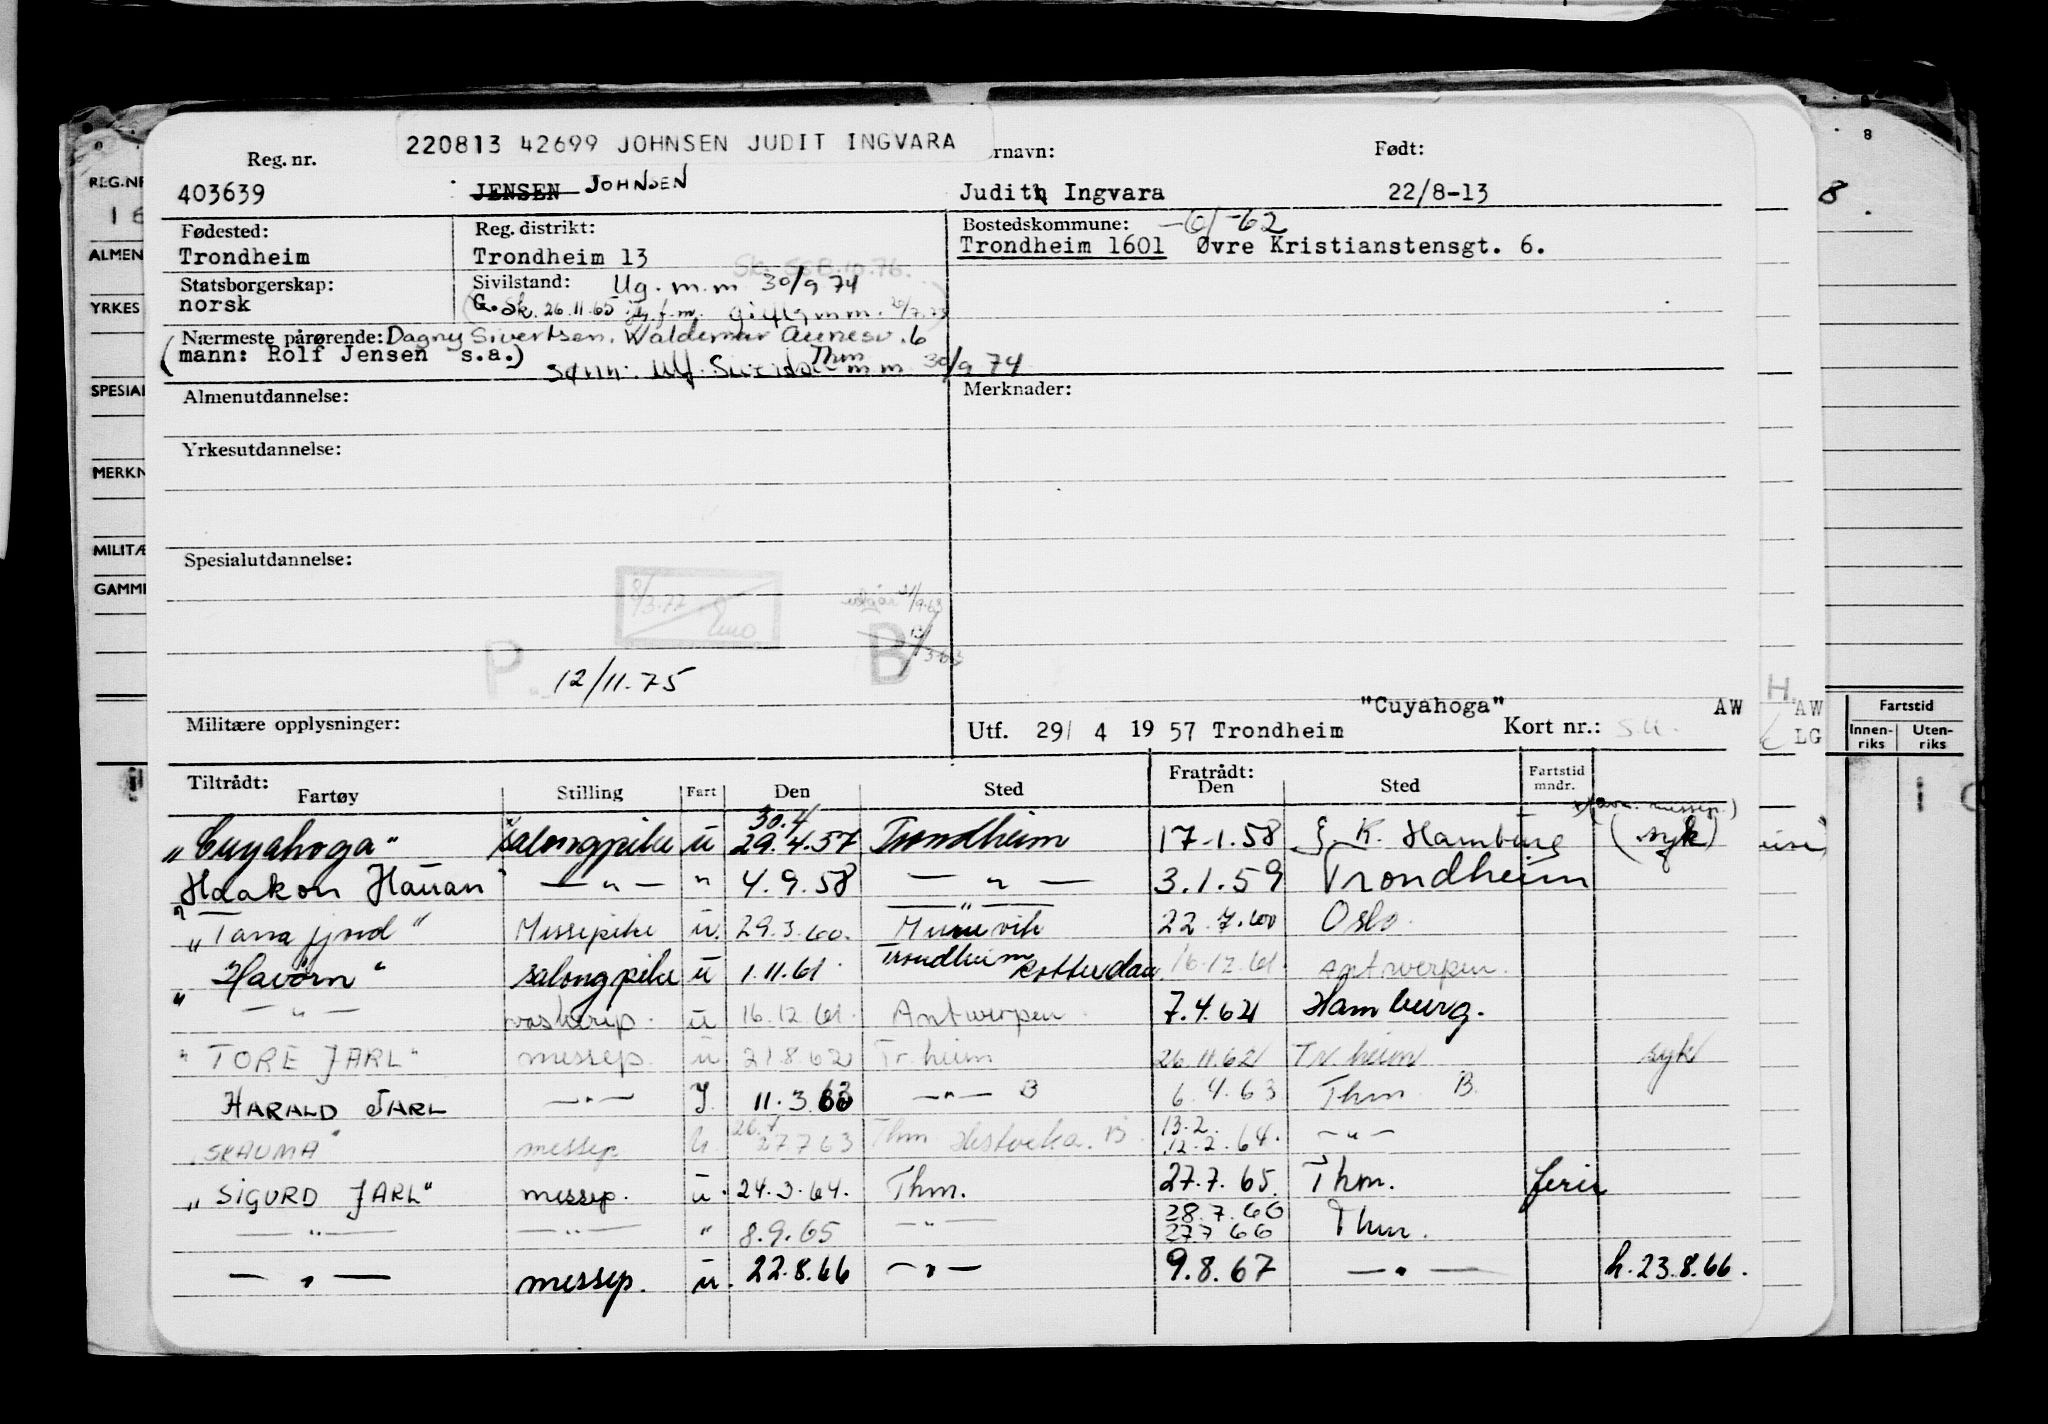 220813 42699 JOHNSEN JUDIT INGVARA
Reg. nr. rnavn: Født:
403639 JENSEN JOHNSEN Judith Ingvara 22/8-13
Fødested: Reg. distrikt: Bostedskommune: -61-62
Trondheim Trondheim 13 Trondheim 1601 Øvre Kristianstensgt. 6.
Sk. SSB.10.76.
Statsborgerskap: Sivilstand: Ug. m.m 30/9 74
norsk G. Sk. 26.11.65 gift m.m.
Nærmeste pårørende: Dagny Sivertsen. Waldemar Aunesv. 6
(mann: Rolf Jensen s.a.) Thm
sønn: Ulf m.m. 30/9 74
Almenutdannelse: Merknader:
Yrkesutdannelse:
Spesialutdannelse:
8/3.77
P B
12/11.75
"Cuyahoga" AW
Militære opplysninger: Utf. 29/ 4 1957 Trondheim Kort nr.: s.u.
Tiltrådt: Fratrådt: Fartstid
Fartøy Stilling Fart Den Sted Den Sted mndr.
30.4
„Cuyahoga" salongpike u 29.4.57 Trondheim 17.1.58 Hamburg (syk)
Haakon Hauan" — „ — " 4.9.58 — „ — 3.1.59 Trondheim
„Tanafjord" Messepike u. 29.3.60. — „ — Munevik 22.7.60 Oslo.
„Havørn" salongpike u 1.11.61. Trondheim Rotterdam 16.12.61. Antwerpen.
— „ — vaskerip. u 16.12.61. Antwerpen. 7.4.62 Hamburg.
"TORE JARL" messep. u 21.8.62 Tr.heim 26.11.62 Tr.heim syk
HARALD JARL — „ — J. 11.3.63 — „ — B 6.4.63 Thm B.
26.7 13.2.
"SKAUMA" messep U. 27.7 63 Thm Hestvika. B. 12.2.64. — „ —
„SIGURD JARL" messep. u. 24.3.64. Thm. 27.7.65. Thm. ferie
28.7.66
— „ — — „ — " 8.9.65 — „ — 27.7 66 Thm.
— „ — messep. u. 22.8.66 — „ — 9.8.67 — „ — h. 23.8.66.
REG.NR
16
ALMEN
YRKES
SPESIAL
MERKN
MILITÆ
GAMME
8
8
H.
AW
LG
Fartstid
Innen-
riks
Uten-
riks